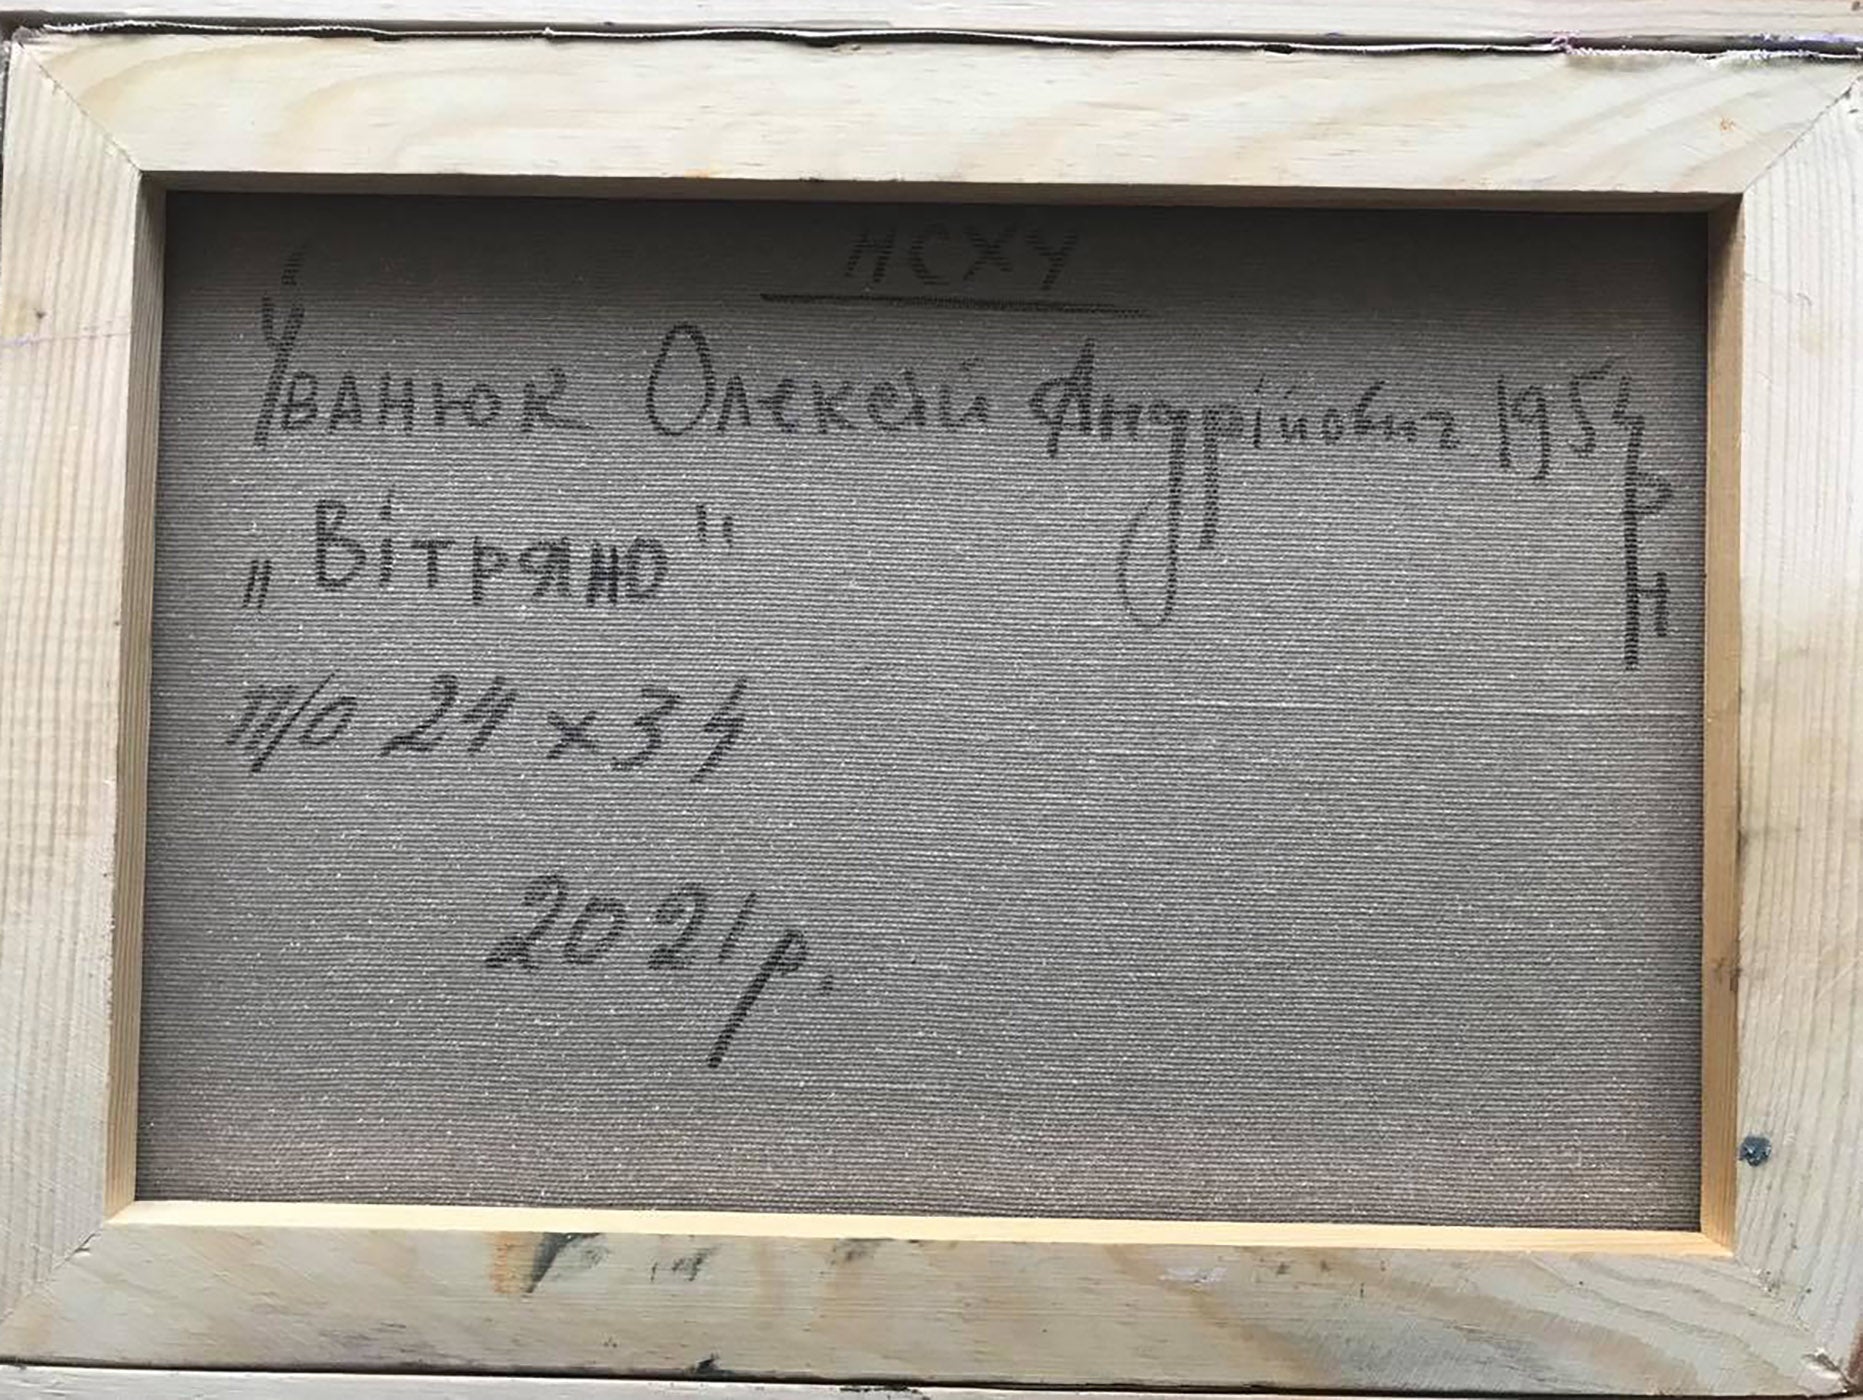 НСХУ
Іванюк Олексій Андрійович 1954
р
н
„Вітряно"
п/о 24 x 34
2021 р.